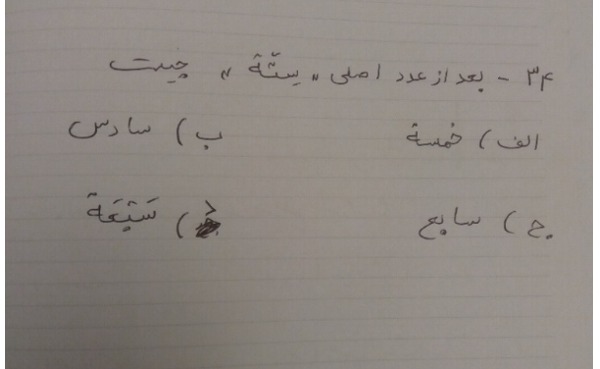 ۳۴ - بعد از عدد اصلی " سِتّة " چیست
الف) خمسة ب) سادس
ج) سابع د) سَبْعَة